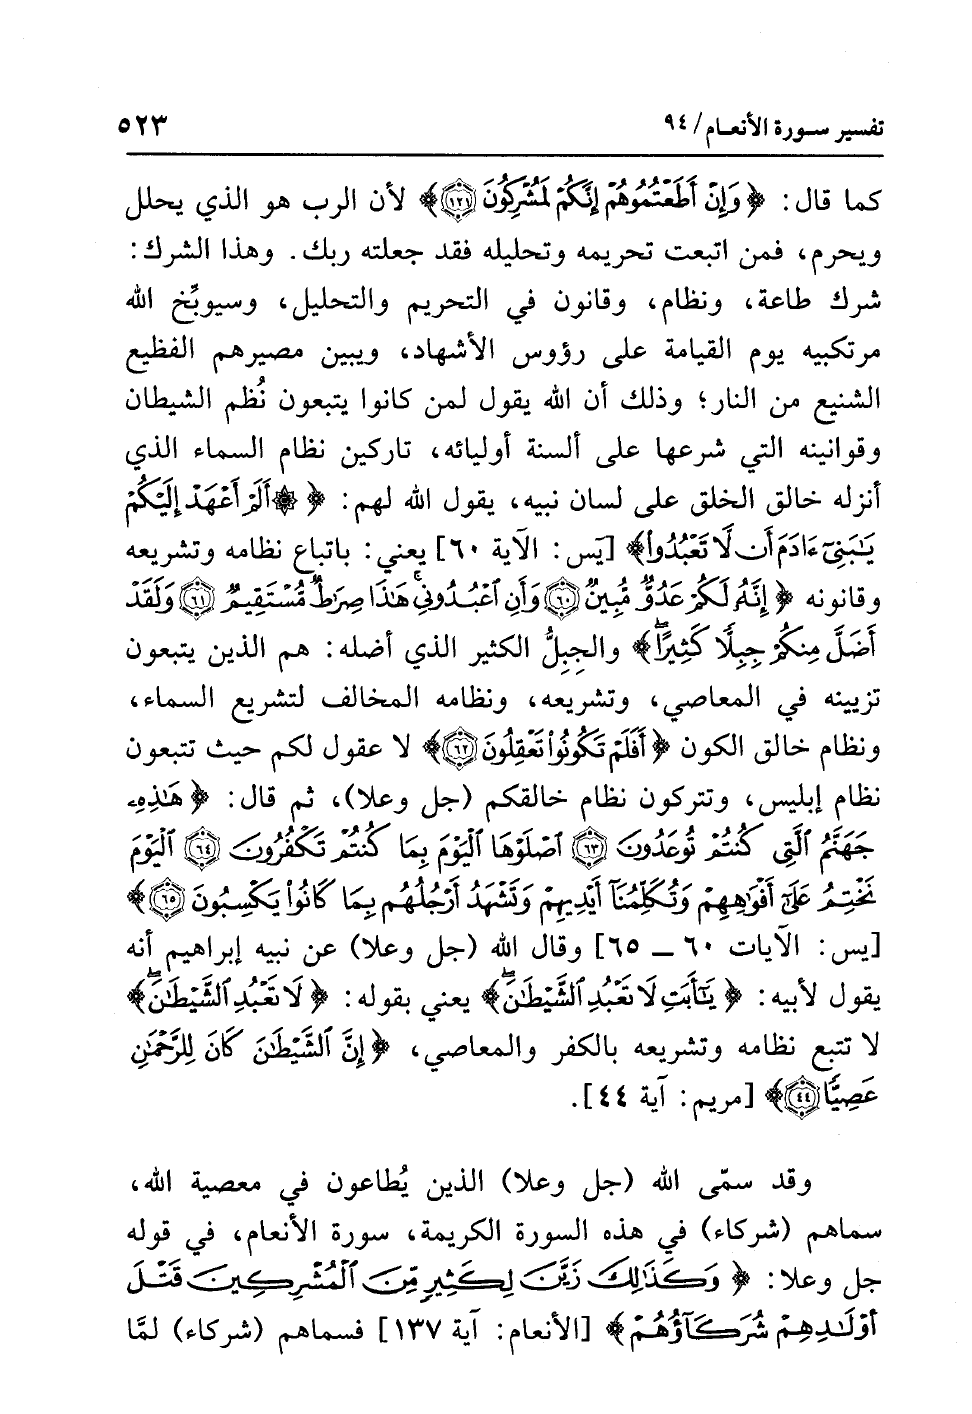 تفسير سورة الأنعام/ ٩٤ ٥٢٣
كما قال: ﴿وَإِنْ أَطَعْتُمُوهُمْ إِنَّكُمْ لَمُشْرِكُونَ ١٢١﴾ لأن الرب هو الذي يحلل
ويحرم، فمن اتبعت تحريمه وتحليله فقد جعلته ربك. وهذا الشرك:
شرك طاعة، ونظام، وقانون في التحريم والتحليل، وسيوبِّخ الله
مرتكبيه يوم القيامة على رؤوس الأشهاد، ويبين مصيرهم الفظيع
الشنيع من النار؛ وذلك أن الله يقول لمن كانوا يتبعون نُظم الشيطان
وقوانينه التي شرعها على ألسنة أوليائه، تاركين نظام السماء الذي
أنزله خالق الخلق على لسان نبيه، يقول الله لهم: ﴿۞ أَلَمْ أَعْهَدْ إِلَيْكُمْ
يَٰبَنِىٓ ءَادَمَ أَن لَّا تَعْبُدُوا۟﴾ [يَس: الآية ٦٠] يعني: باتباع نظامه وتشريعه
وقانونه ﴿إِنَّهُۥ لَكُمْ عَدُوٌّ مُّبِينٌ ٦٠ وَأَنِ ٱعْبُدُونِى ۚ هَٰذَا صِرَٰطٌ مُّسْتَقِيمٌ ٦١ وَلَقَدْ
أَضَلَّ مِنكُمْ جِبِلًّا كَثِيرًا ۖ﴾ والجِبِلُّ الكثير الذي أضله: هم الذين يتبعون
تزيينه في المعاصي، وتشريعه، ونظامه المخالف لتشريع السماء،
ونظام خالق الكون ﴿أَفَلَمْ تَكُونُوا۟ تَعْقِلُونَ ٦٢﴾ لا عقول لكم حيث تتبعون
نظام إبليس، وتتركون نظام خالقكم (جل وعلا)، ثم قال: ﴿هَٰذِهِۦ
جَهَنَّمُ ٱلَّتِى كُنتُمْ تُوعَدُونَ ٦٣ ٱصْلَوْهَا ٱلْيَوْمَ بِمَا كُنتُمْ تَكْفُرُونَ ٦٤ ٱلْيَوْمَ
نَخْتِمُ عَلَىٰٓ أَفْوَٰهِهِمْ وَتُكَلِّمُنَآ أَيْدِيهِمْ وَتَشْهَدُ أَرْجُلُهُم بِمَا كَانُوا۟ يَكْسِبُونَ ٦٥﴾
[يس: الآيات ٦٠ ــ ٦٥] وقال الله (جل وعلا) عن نبيه إبراهيم أنه
يقول لأبيه: ﴿يَٰٓأَبَتِ لَا تَعْبُدِ ٱلشَّيْطَٰنَ ۖ﴾ يعني بقوله: ﴿لَا تَعْبُدِ ٱلشَّيْطَٰنَ ۖ﴾
لا تتبع نظامه وتشريعه بالكفر والمعاصي، ﴿إِنَّ ٱلشَّيْطَٰنَ كَانَ لِلرَّحْمَٰنِ
عَصِيًّا ٤٤﴾ [مريم: آية ٤٤].
وقد سمّى الله (جل وعلا) الذين يُطاعون في معصية الله،
سماهم (شركاء) في هذه السورة الكريمة، سورة الأنعام، في قوله
جل وعلا: ﴿وَكَذَٰلِكَ زَيَّنَ لِكَثِيرٍ مِّنَ ٱلْمُشْرِكِينَ قَتْلَ
أَوْلَٰدِهِمْ شُرَكَآؤُهُمْ﴾ [الأنعام: آية ١٣٧] فسماهم (شركاء) لمَّا